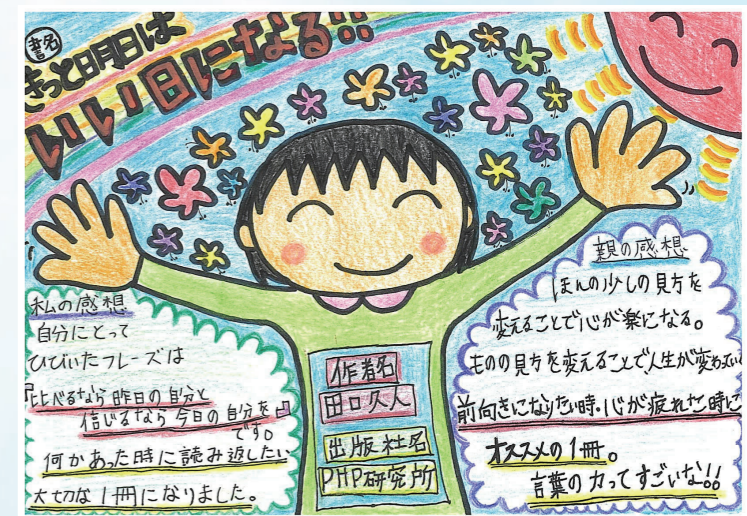 書名
きっと明日は
いい日になる!!
私の感想
自分にとって
ひびいたフレーズは
『比べるなら昨日の自分と
信じるなら今日の自分を』
です。
何かあった時に読み返したい
大切な1冊になりました。
作者名
田口久人
出版社名
PHP研究所
親の感想
ほんの少しの見方を
変えることで心が楽になる。
ものの見方を変えることで人生が変わっていく
前向きになりたい時・心が疲れた時に
オススメの1冊。
言葉の力ってすごいな!!